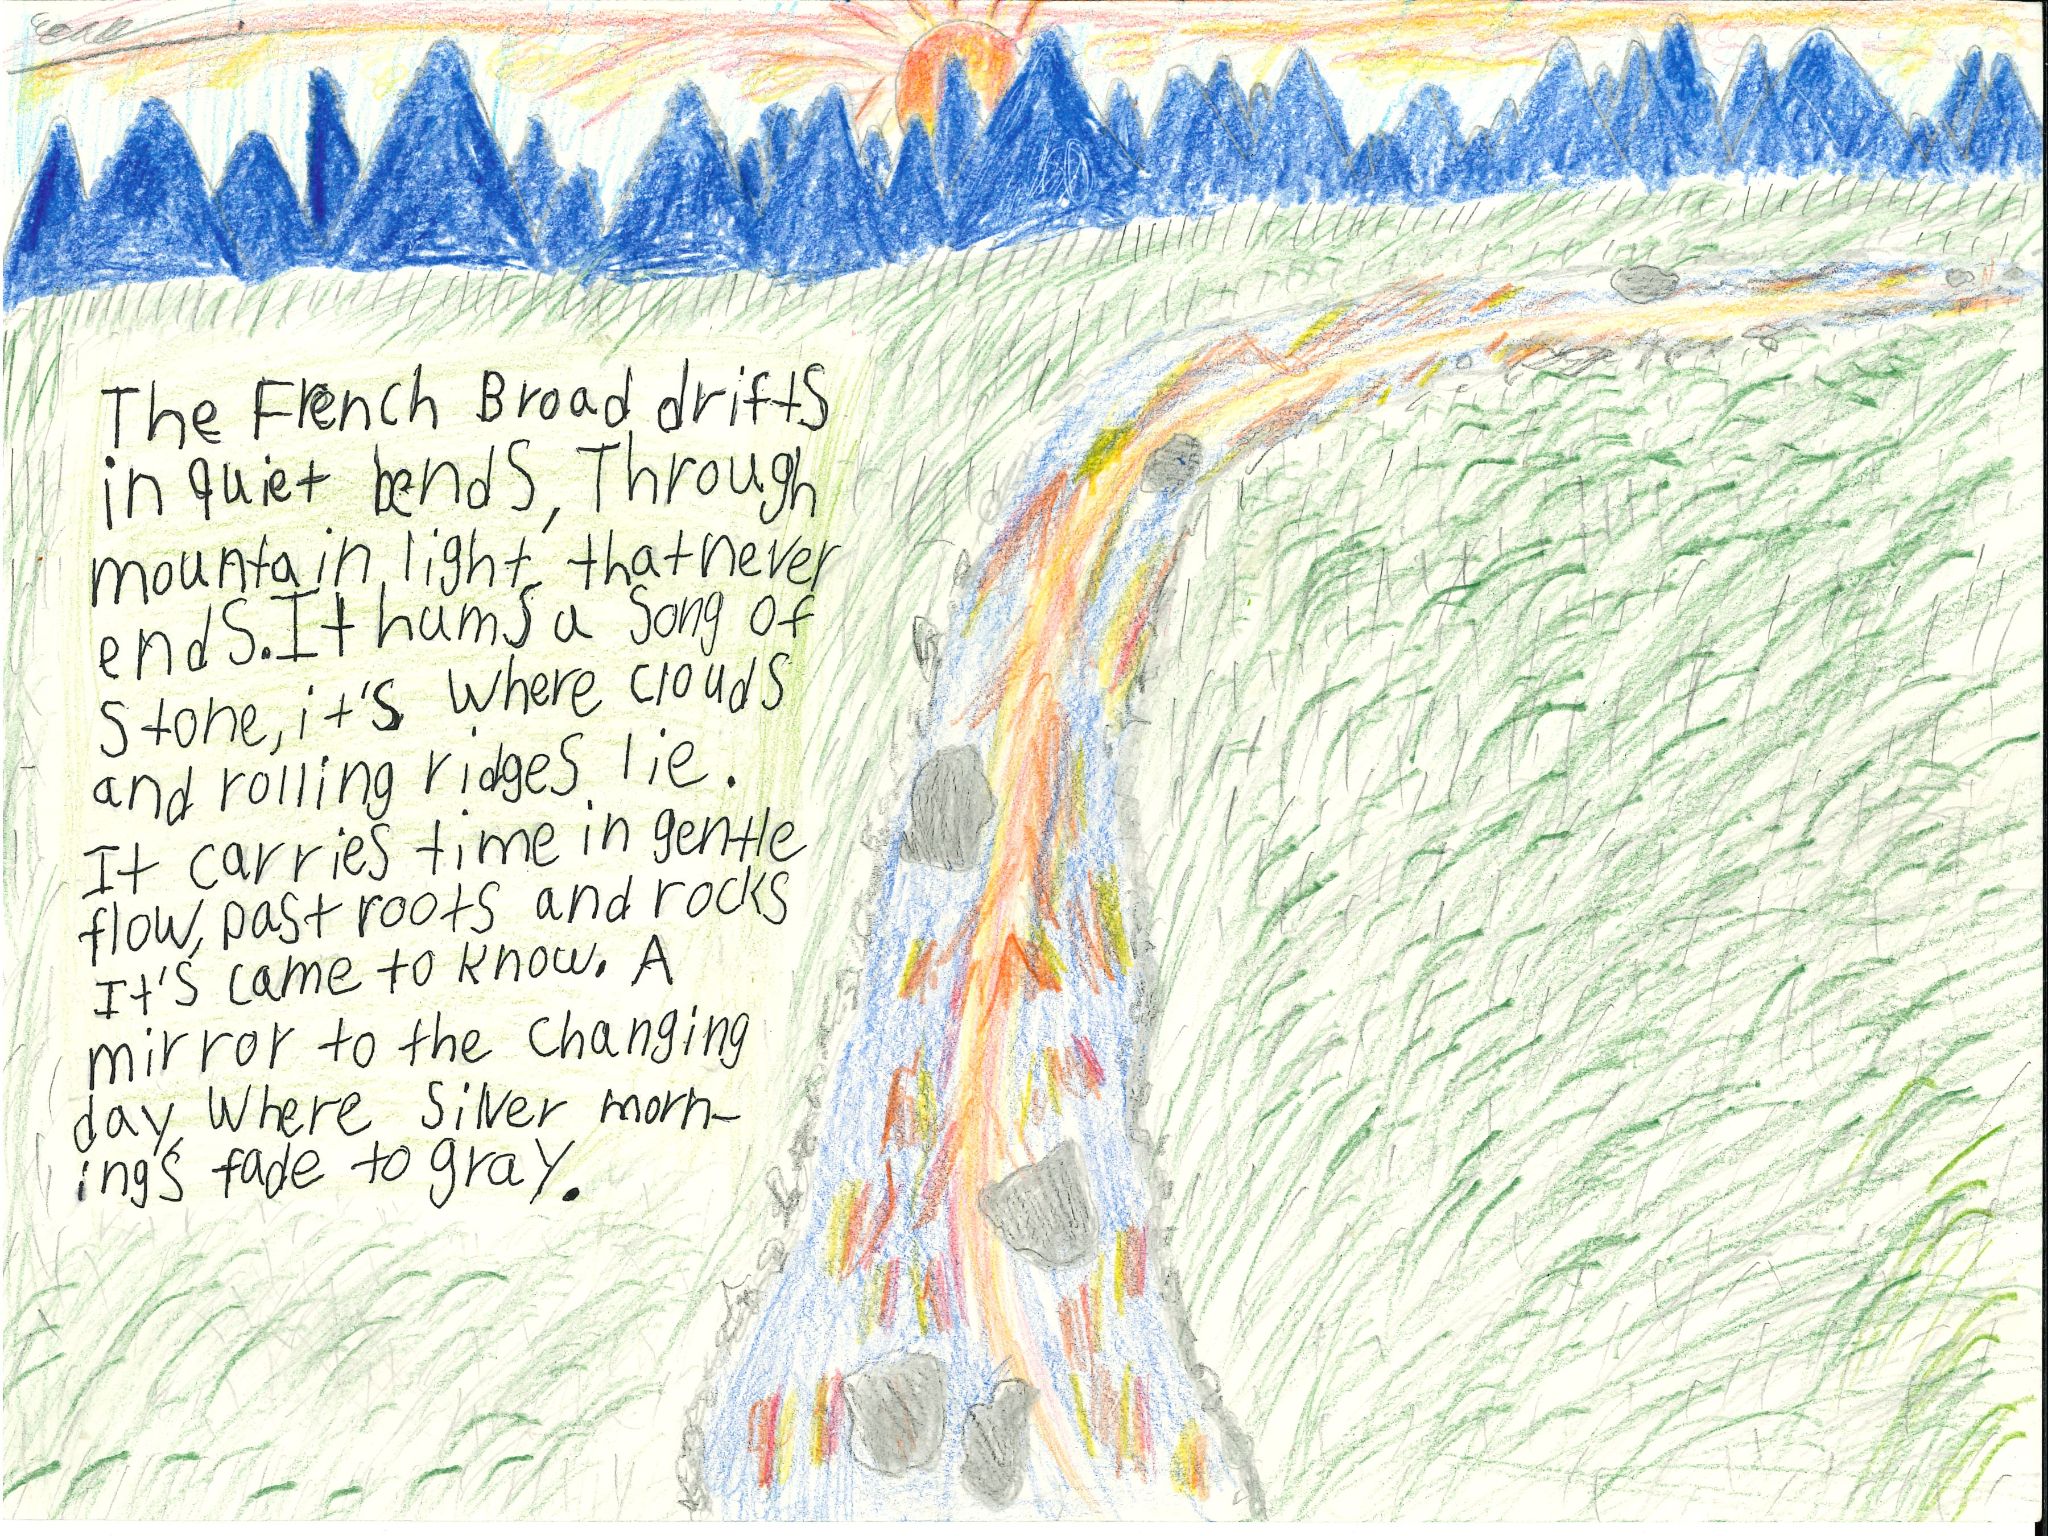 The French Broad drifts
in quiet bends, Through
mountain light, that never
ends. It hums a Song of
Stone, it's where clouds
and rolling ridges lie.
It carries time in gentle
flow, past roots and rocks
It's came to know. A
mirror to the changing
day, Where Silver morn-
ings fade to gray.